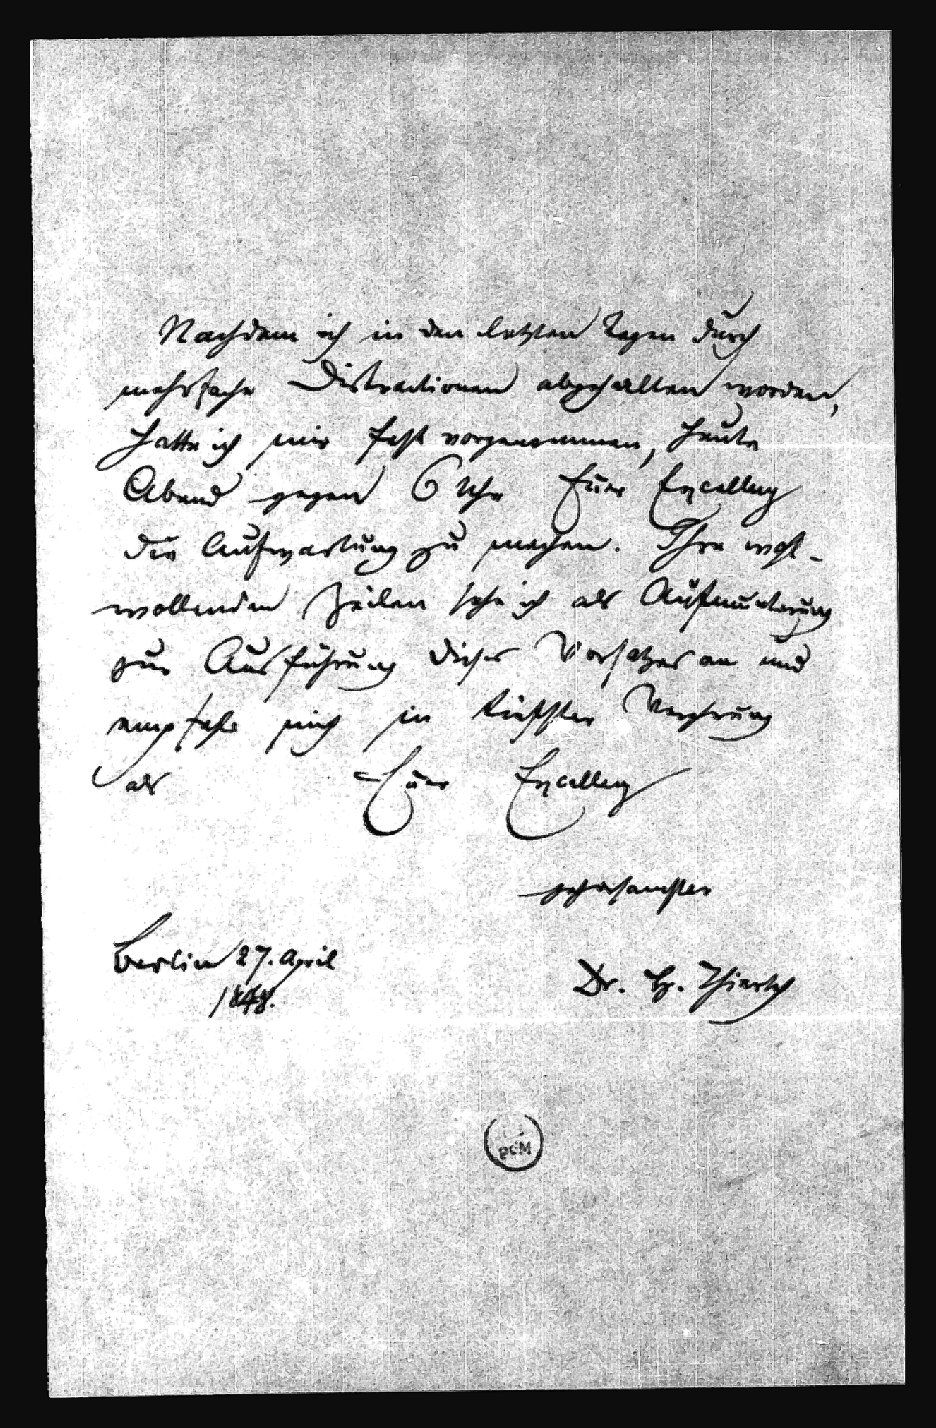 Nachdem ich in den letzten Tagen durch
mehrfache Distractionen abgehalten worden,
hatte ich mir fest vorgenommen, heute
Abend gegen 6 Uhr Euer Excellenz
die Aufwartung zu machen. Ihre wohl-
wollenden Zeilen sehe ich als Aufmunterung
zur Ausführung dieses Vorsatzes an und
empfehle mich in tiefster Verehrung
als Euer Excellenz
gehorsamster
Berlin 27. April
1848.
Dr. H. Thiersch